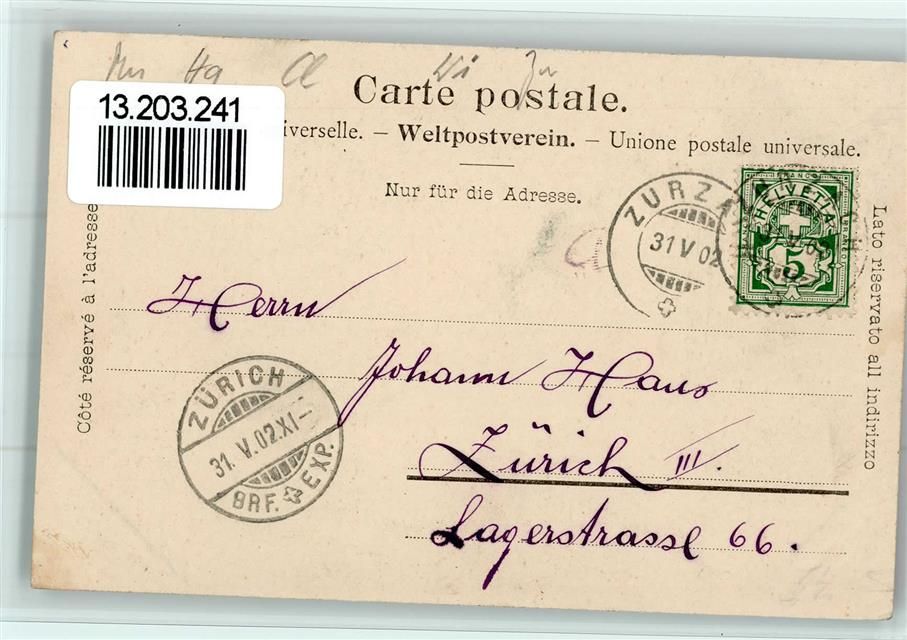 Ha Cl Wi Zu
Carte postale.
13.203.241
iverselle. – Weltpostverein. – Unione postale universale.
Nur für die Adresse.
Côté réservé à l'adresse
Lato riservato all indirizzo
ZURZA
31 V 02
FRANCO
HELVETIA
5
Herrn
Johann Haus
Zürich III.
Lagerstrasse 66.
ZÜRICH
31. V. 02. XI–
BRF. EXP.